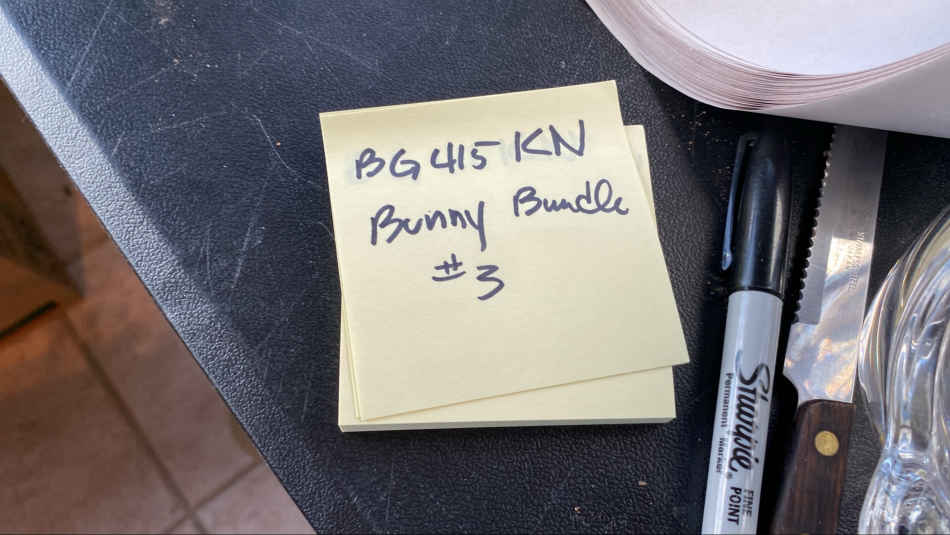 BG415KN
Bunny Bundle
#3
Sharpie
Permanent Marker
FINE
POINT